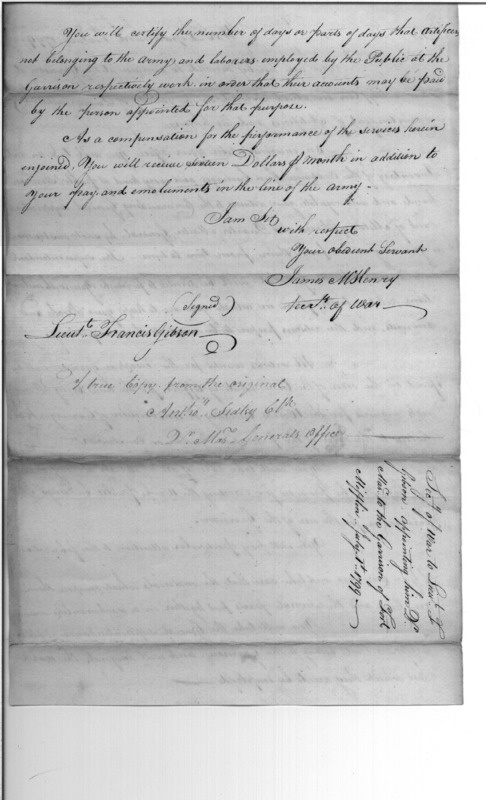 You will certify the number of days or parts of days that artificers
not belonging to the army and laborers employed by the Public at the
Garrison respectively work in order that their accounts may be paid
by the person appointed for that purpose.
As a compensation for the performance of the services herein
enjoined, You will receive sixteen Dollars ⅌ month in addition to
your pay and emoluments in the line of the army -
I am Sir
with respect
Your obedient Servant
James McHenry
Secy. of War
(Signed)
Lieut. Francis Gibson
A true Copy from the original
Clk
Qr Mas. Generals Office
Secy. of War to Lieut. F
Gibson appointing him Qr
Mas. to the Garrison of Fort
Mifflin July 1st. 1799